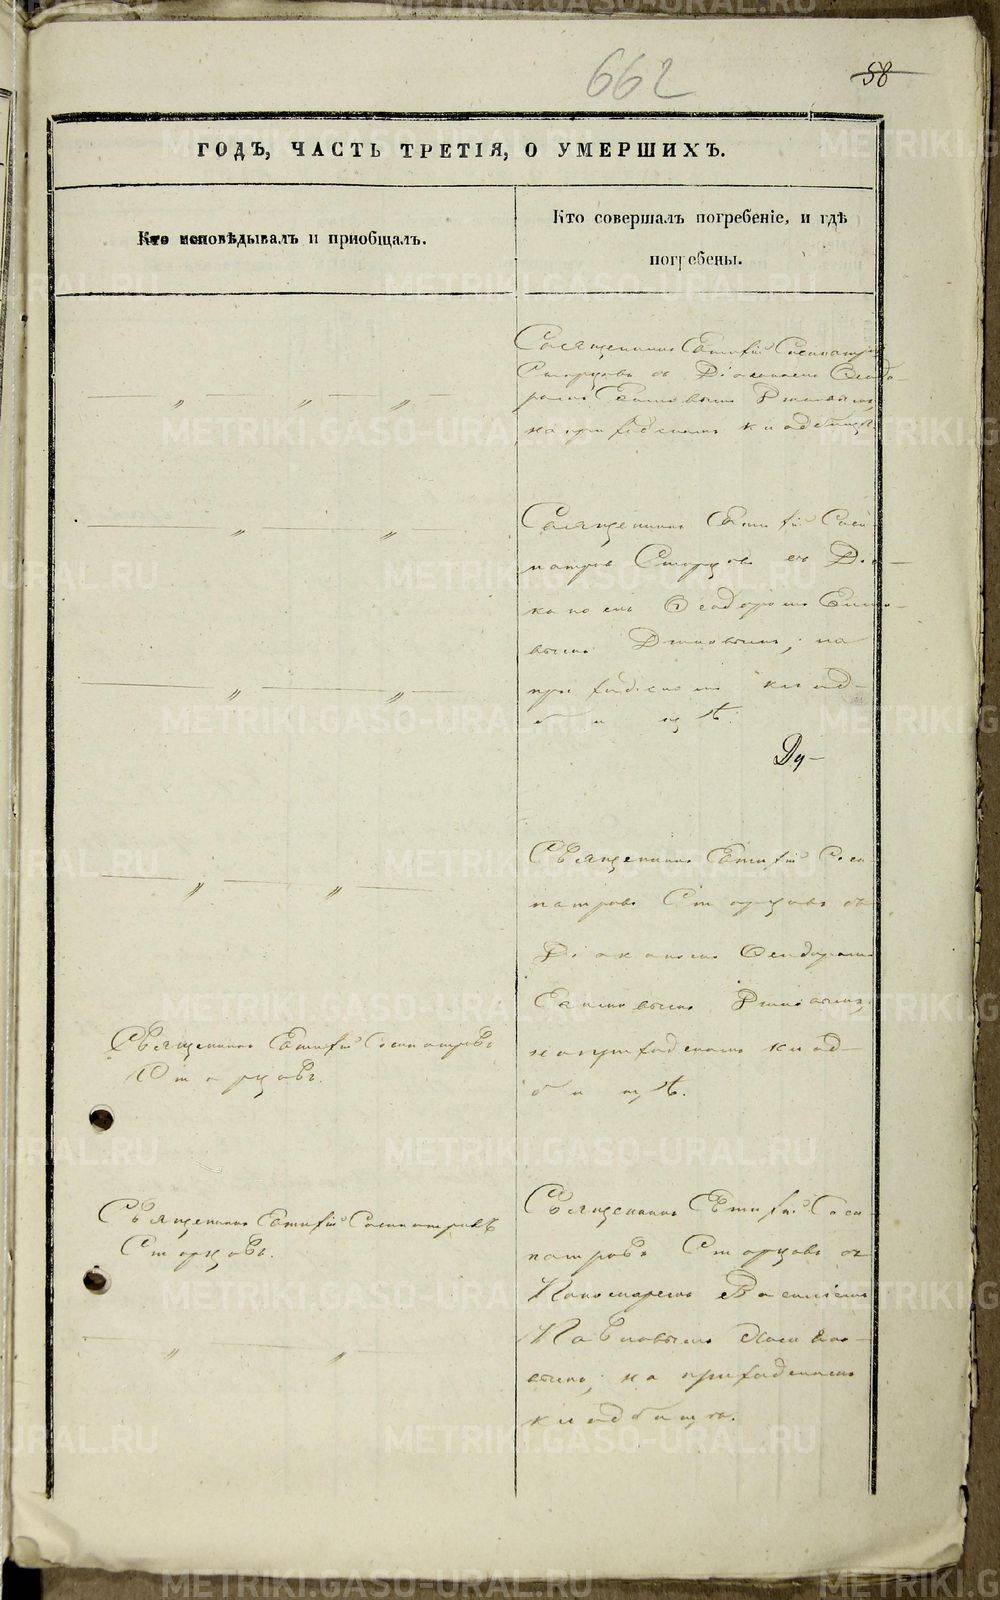 662
58
ГОДЪ, ЧАСТЬ ТРЕТІЯ, О УМЕРШИХЪ.
Кто исповѣдывалъ и пріобщалъ.
Кто совершалъ погребеніе, и гдѣ
погребены.
Священникъ Евтифій Сосипатровъ
Сторцовъ съ Діакономъ Ѳеодо-
ромъ
на приходскомъ кладбищѣ
Священникъ Евтифій Соси-
патровъ Сторцовъ съ Діа-
кономъ Ѳеодоромъ
на
приходскомъ клад-
бищѣ.
Священникъ Евтифій Соси-
патровъ Сторцовъ съ
Діакономъ Ѳеодоромъ
на приходскомъ клад-
бищѣ.
Священникъ Евтифій Сосипатровъ
Сторцовъ.
Священникъ Евтифій Сосипатровъ
Сторцовъ.
Священникъ Евтифій Соси-
патровъ Сторцовъ съ
Пономаремъ Василіемъ
Павловымъ
на приходскомъ
кладбищѣ.
METRIKI.GASO-URAL.RU